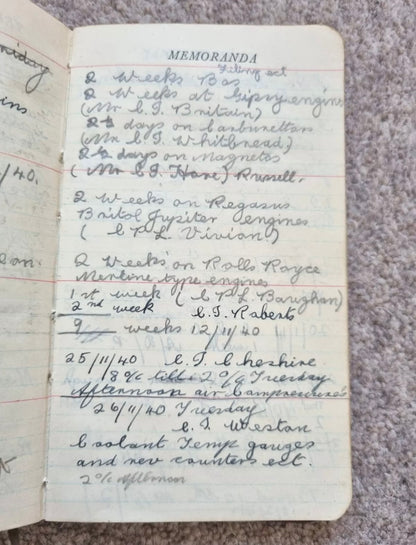 MEMORANDA
Filing ect
2 Weeks Bas
2 Weeks at Gipsy engine
(Mr C.I. Britain)
2½ days on Carburettors
(Mr C.I. Whitbread)
2½ days on Magnetos
(Mr C.I. Hare) Russell.
2 Weeks on Pegasus
Bristol Jupiter engines
( CPL Vivian )
2 Weeks on Rolls Royce
Merline type engines
1st week ( CPL Baughan)
2nd week C.I. Roberts
9 weeks 12/11/40
25/11/40 C.I. Cheshire
8 o/c till 2 o/c Tuesday
Afternoon air Compressors
26/11/40 Tuesday
C.I. Weston
Coolant Temp gauges
and rev counters ect.
2 o/c Afternoon
nday
ins
/40.
eon